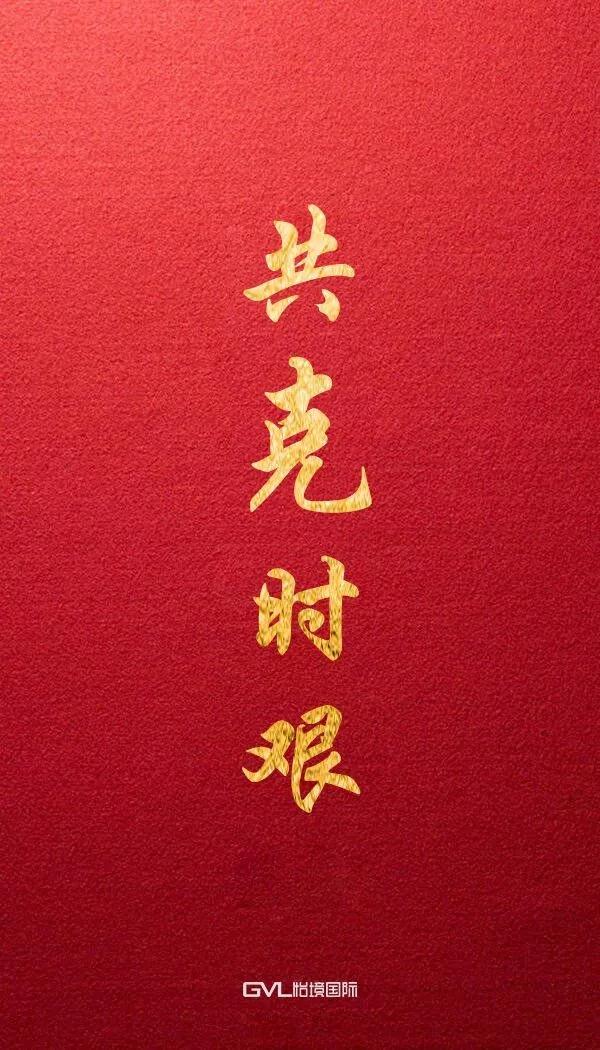 共克时艰
GVL怡境国际